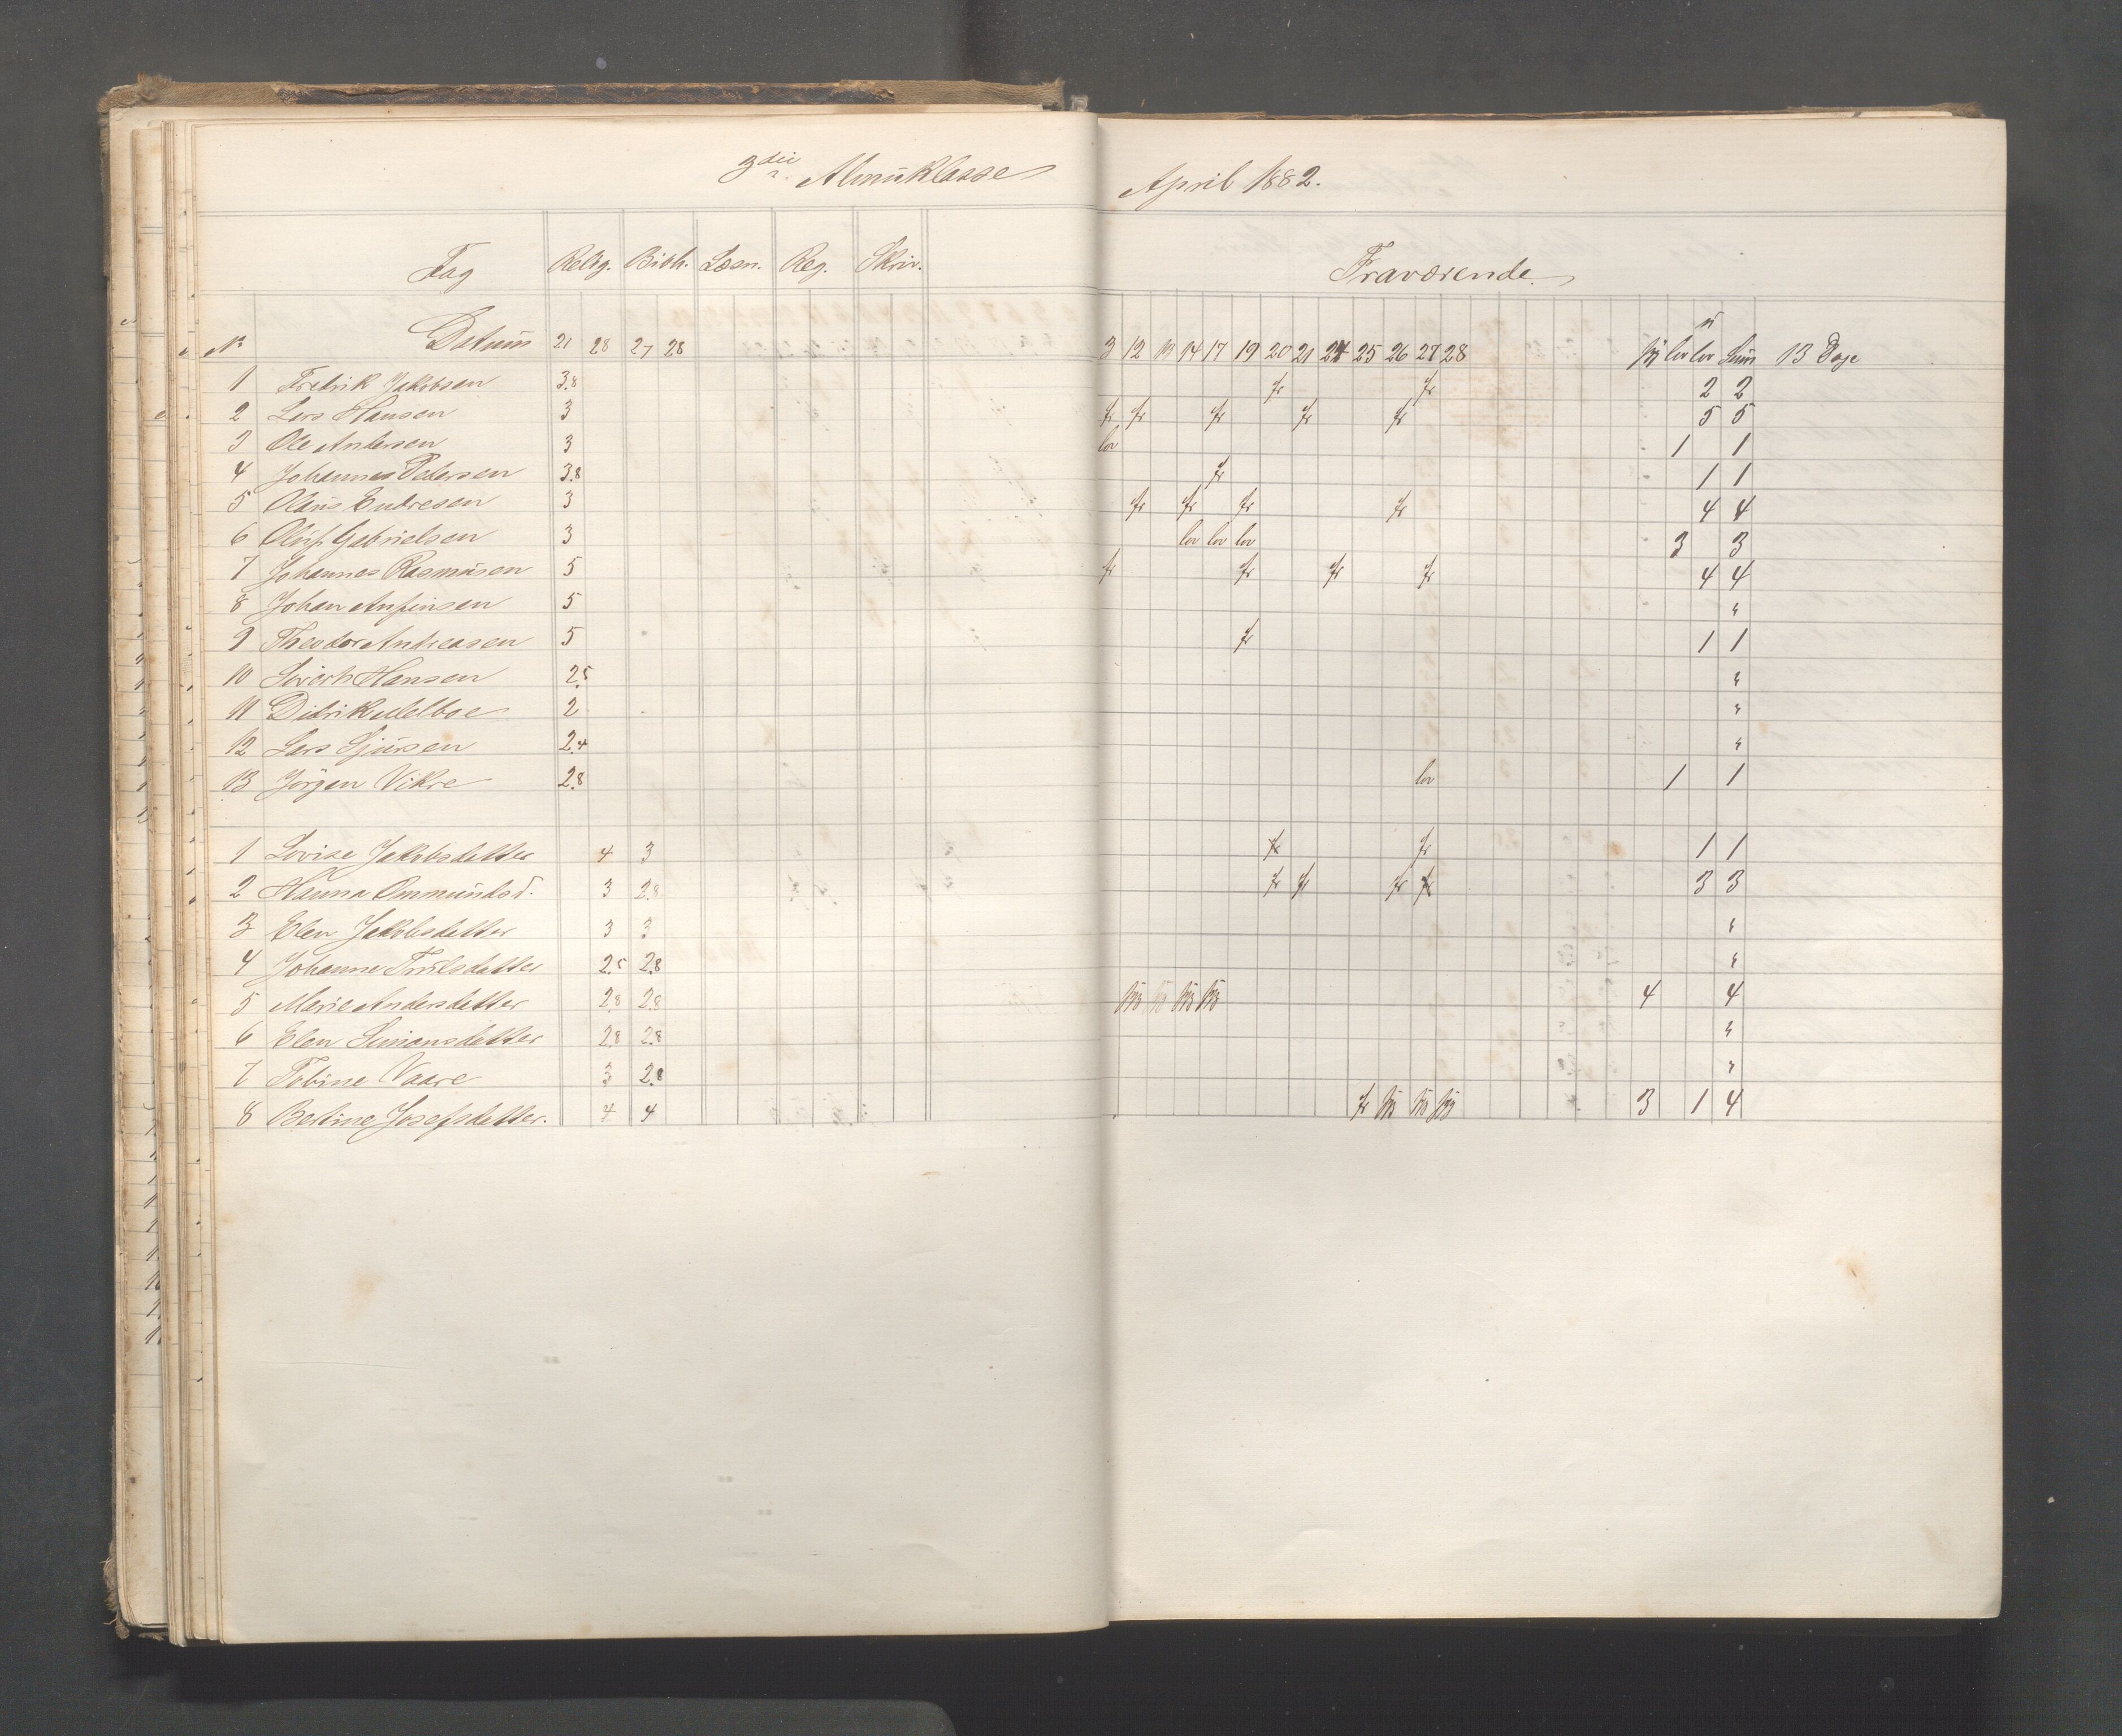 3die Almuklasse April 1882.
Fag Relig. Bibh. Læsn. Reg. Skriv. Fraværende.
No Datum 21 28 27 28 3 12 13 14 17 19 20 21 24 25 26 27 28 lov ulov Sum 13 Dage
1 Fredrik Jakobsen 3.8 fr fr 2 2
2 Lars Hansen 3 fr fr fr fr fr 5 5
3 Ole Andersen 3 lov 1 1
4 Johannes Pedersen 3.8 fr 1 1
5 Olaus Endresen 3 fr fr fr fr 4 4
6 Oluf Gabrielsen 3 lov lov lov 3 3
7 Johannes Rasmusen 5 fr fr fr fr 4 4
8 Johan Anfinsen 5 "
9 Theodor Andreasen 5 fr 1 1
10 Sivert Hansen 2.5 "
11 Didrik Melboe 2 "
12 Lars Sjursen 2.4 "
13 Jørgen Vikre 2.8 lov 1 1
1 Lovise Jakobsdatter 4 3 fr fr 1 1
2 Hanna Ommundsd. 3 2.8 fr fr fr fr 3 3
3 Elen Jakobsdatter 3 3 "
4 Johanne Trulsdatter 2.5 2.8 "
5 Marie Andersdatter 2.8 2.8 4 4
6 Elen Simonsdatter 2.8 2.8 "
7 Tobine Vaare 3 2.8 "
8 Bertine Josefsdatter. 4 4 fr 3 1 4